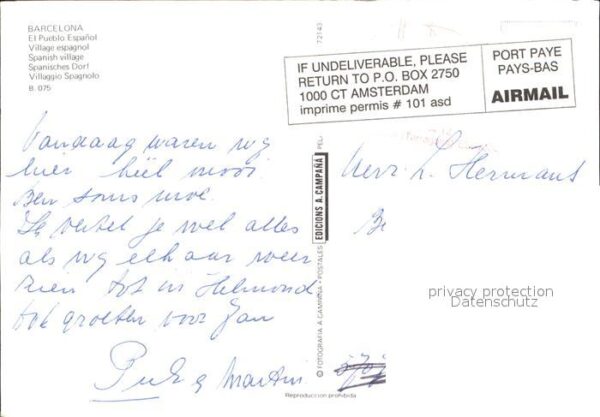 BARCELONA
El Pueblo Español
Village espagnol
Spanish village
Spanisches Dorf
Villaggio Spagnolo
B. 075
Vandaag waren wij
hier heel mooi
Ben soms moe.
Ik vertel je wel alles
als wij elkaar weer
zien tot in Helmond
ook groeten voor Jan
Martin
72143
EDICIONS A. CAMPAÑÁ
© FOTOGRAFIA A. CAMPAÑÁ · POSTALES
Reproducción prohibida
IF UNDELIVERABLE, PLEASE
RETURN TO P.O. BOX 2750
1000 CT AMSTERDAM
imprime permis # 101 asd
PORT PAYE
PAYS-BAS
AIRMAIL
L. Hermans
Be
privacy protection
Datenschutz